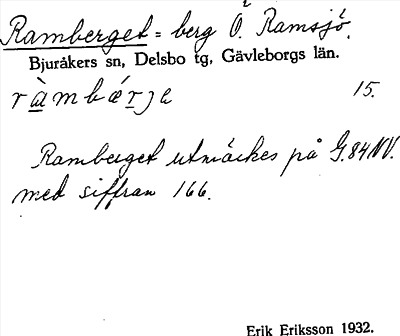 Ramberget = berg Ö. Ramsjö.
Bjuråkers sn, Delsbo tg, Gävleborgs län.
ràmbǽrje 15.
Ramberget utmärkes på G.84NV.
med siffran 166.
Erik Eriksson 1932.